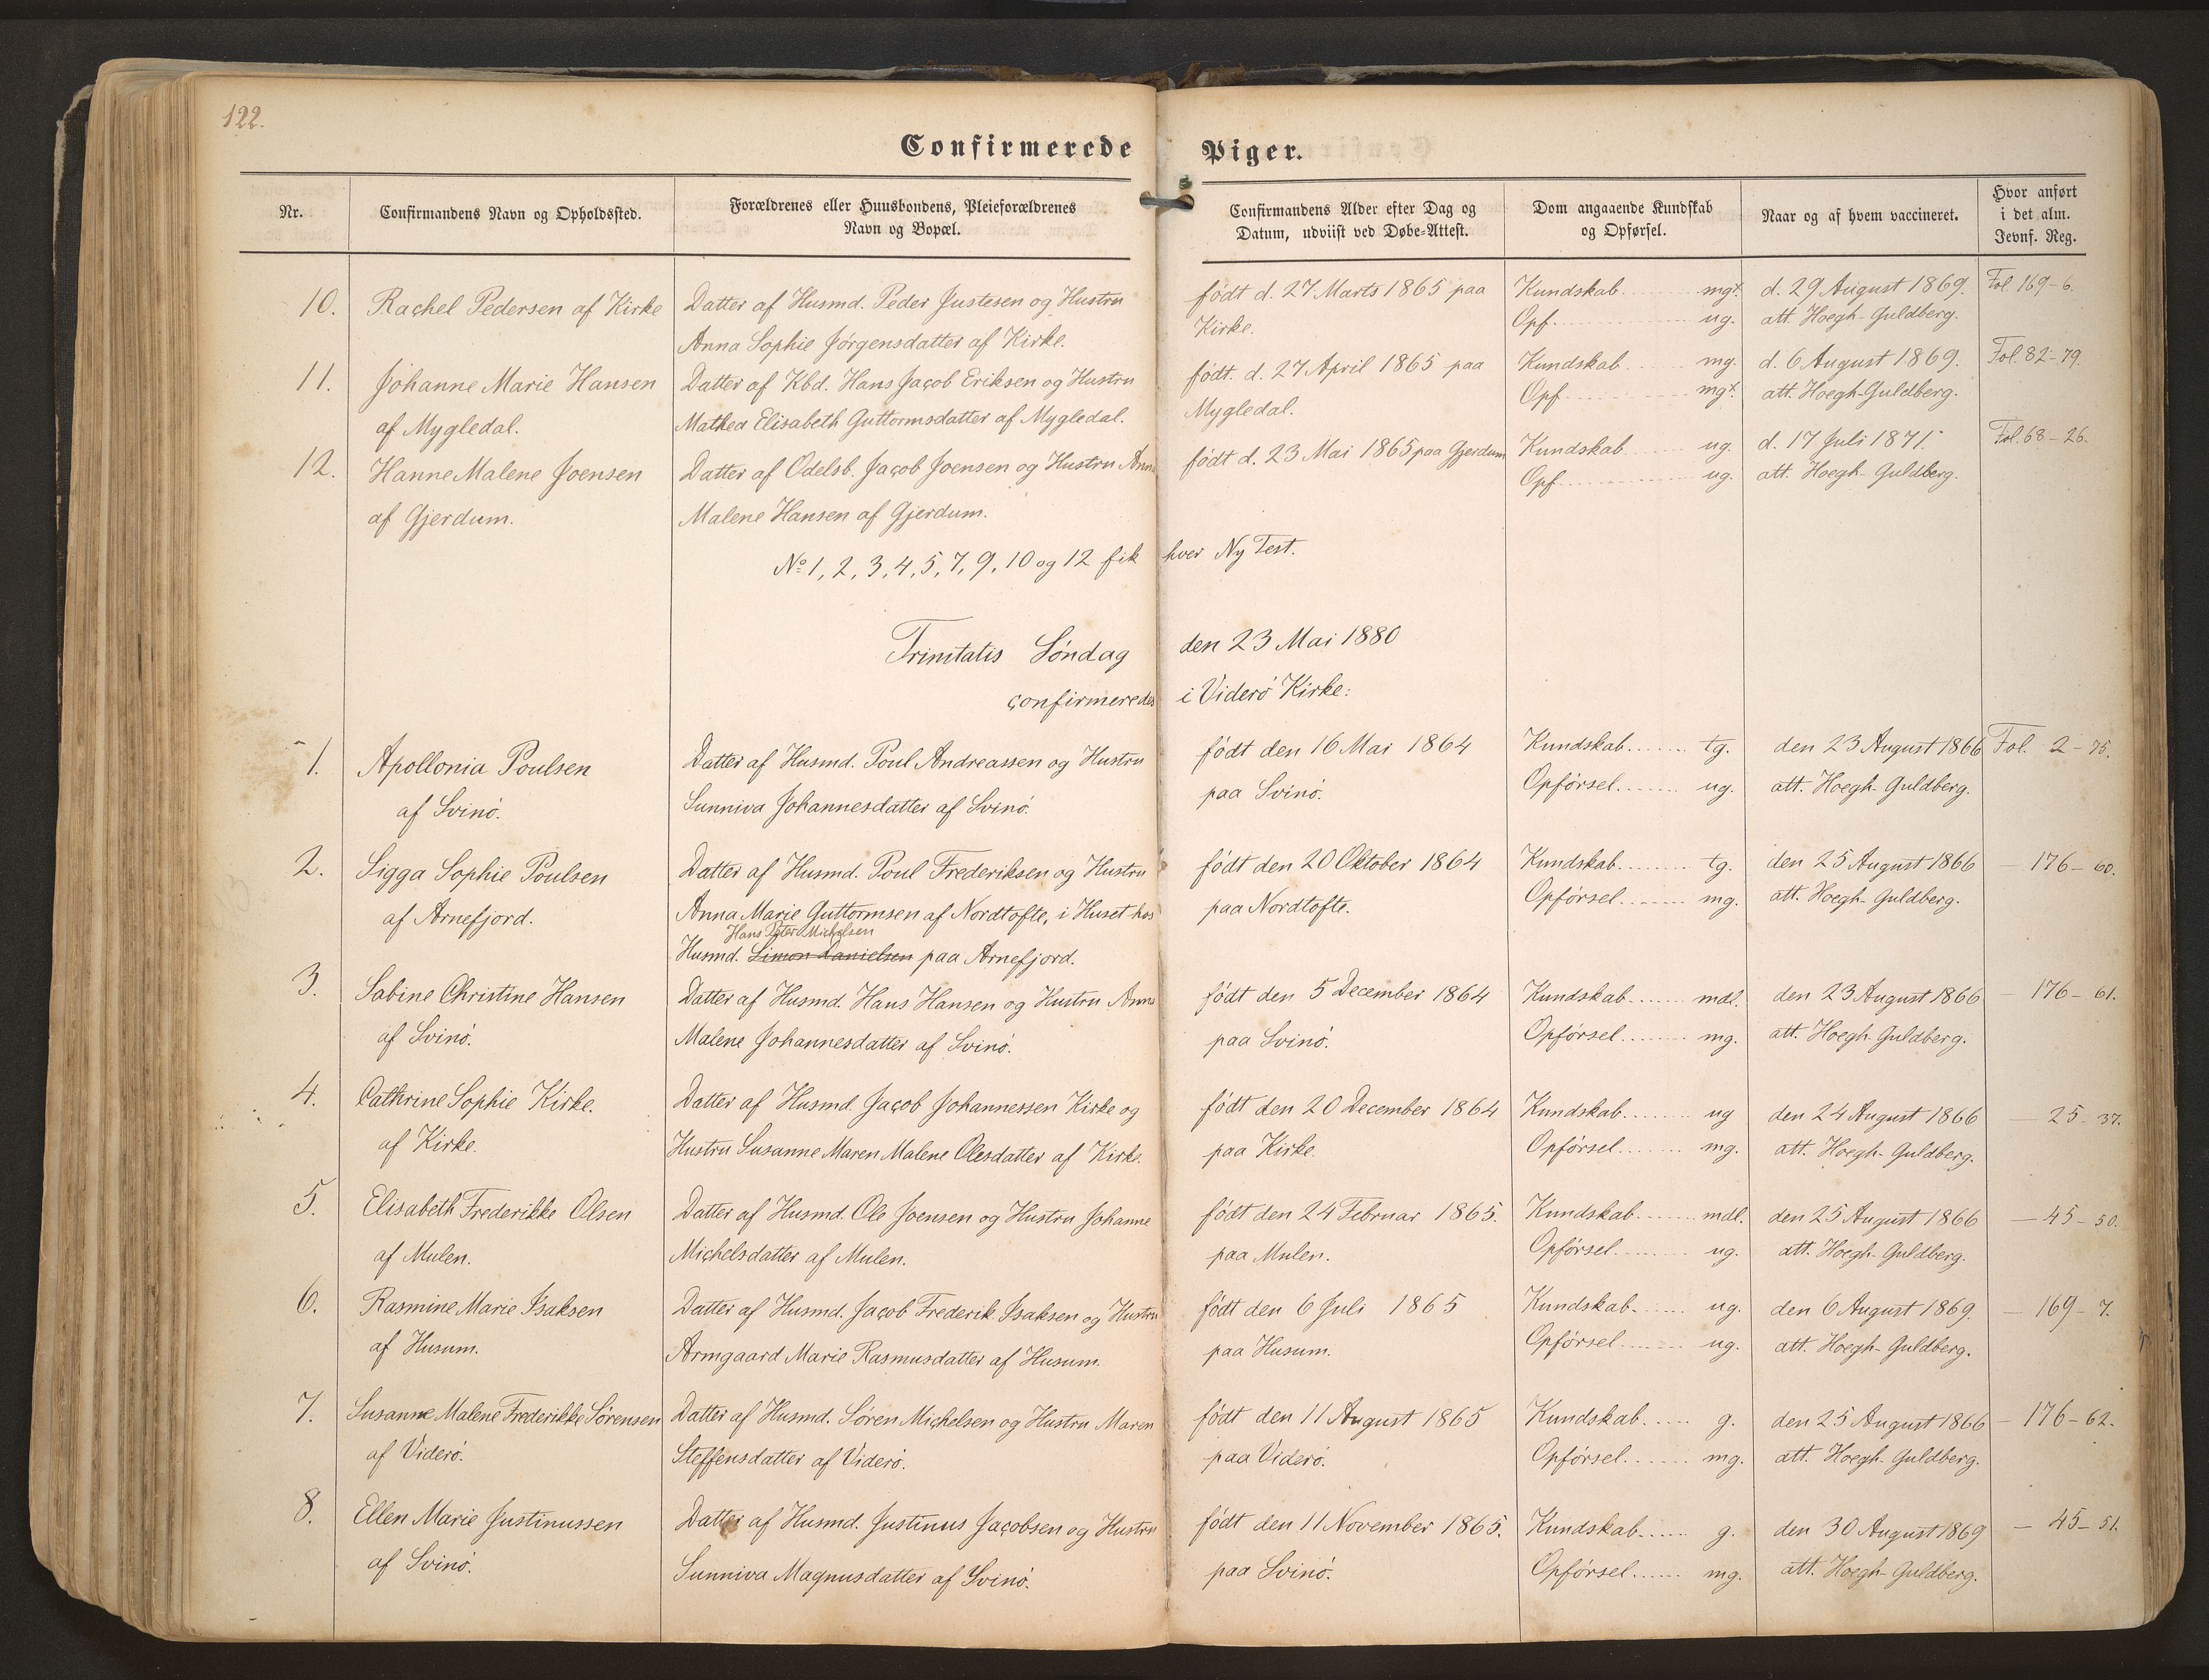 122.
Confirmerede Piger.
Nr.
Confirmandens Navn og Opholdssted.
Forældrenes eller Huusbondens, Pleieforældrenes
Navn og Bopæl.
Confirmandens Alder efter Dag og
Datum, udviist ved Døbe-Attest.
Dom angaaende Kundskab
og Opførsel.
Naar og af hvem vaccineret.
Hvor anført
i det alm.
Jevnf. Reg.
10. Rachel Pedersen af Kirke
Datter af Husmd. Peder Justesen og Hustru
Anna Sophie Jørgensdatter af Kirke.
født d. 27 Marts 1865 paa
Kirke.
Kundskab mgx.
Opf. ug.
d. 29 August 1869.
att. Hoegh-Guldberg.
Fol. 169-6.
11. Johanne Marie Hansen
af Mygledal.
Datter af Kbd. Hans Jacob Eriksen og Hustru
Mathea Elisabeth Guttormsdatter af Mygledal.
født. d. 27 April 1865 paa
Mygledal.
Kundskab mg.
Opf. mgx.
d. 6 August 1869.
att. Hoegh-Guldberg.
Fol. 82-79.
12. Hanne Malene Joensen
af Gjerdum.
Datter af Odelsb. Jacob Joensen og Hustru Anna
Malene Hansen af Gjerdum.
født d. 23 Mai 1865 paa Gjerdum
Kundskab ug.
Opf. ug.
d. 17 Juli 1871.
att. Hoegh-Guldberg.
Fol. 68-26.
No 1, 2, 3, 4, 5, 7, 9, 10 og 12 fik hver Ny Test.
Trinitatis Søndag den 23 Mai 1880
confirmeredes i Viderø Kirke:
1. Apollonia Poulsen
af Svinø.
Datter af Husmd. Poul Andreassen og Hustru
Sunniva Johannesdatter af Svinø.
født den 16 Mai 1864
paa Svinø.
Kundskab tg.
Opførsel ug.
den 23 August 1866
att. Hoegh-Guldberg.
Fol. 2-75.
2. Sigga Sophie Poulsen
af Arnefjord.
Datter af Husmd. Poul Frederiksen og Hustru
Anna Marie Guttormsen af Nordtofte, i Huset hos
Hans Peter Michelsen
Husmd. Simon Danielsen paa Arnefjord.
født den 20 Oktober 1864
paa Nordtofte.
Kundskab tg.
Opførsel mg.
den 25 August 1866
att. Hoegh-Guldberg.
— 176-60.
3. Sabine Christine Hansen
af Svinø.
Datter af Husmd. Hans Hansen og Hustru Anna
Malene Johannesdatter af Svinø.
født den 5 December 1864
paa Svinø.
Kundskab mdl.
Opførsel mg.
den 23 August 1866
att. Hoegh-Guldberg.
— 176-61.
4. Cathrine Sophie Kirke.
af Kirke.
Datter af Husmd. Jacob Johannessen Kirke og
Hustru Susanne Maren Malene Olesdatter af Kirke.
født den 20 December 1864
paa Kirke.
Kundskab ug
Opførsel mg.
den 24 August 1866
att. Hoegh-Guldberg.
— 25-37.
5. Elisabeth Frederikke Olsen
af Mulen.
Datter af Husmd. Ole Joensen og Hustru Johanne
Michelsdatter af Mulen.
født den 24 Februar 1865.
paa Mulen.
Kundskab mdl.
Opførsel ug.
den 25 August 1866
att. Hoegh-Guldberg.
— 45-50.
6. Rasmine Marie Isaksen
af Husum.
Datter af Husmd. Jacob Frederik Isaksen og Hustru
Armgaard Marie Rasmusdatter af Husum.
født den 6 Juli 1865
paa Husum.
Kundskab ug.
Opførsel ug.
den 6 August 1869.
att. Hoegh-Guldberg.
— 169-7.
7. Susanne Malene Frederikke Sørensen
af Viderø.
Datter af Husmd. Søren Michelsen og Hustru Maren
Steffensdatter af Viderø.
født den 11 August 1865
paa Viderø.
Kundskab g.
Opførsel mg.
den 25 August 1866
att. Hoegh-Guldberg.
— 176-62.
8. Ellen Marie Justinussen
af Svinø.
Datter af Husmd. Justinus Jacobsen og Hustru
Sunniva Magnusdatter af Svinø.
født den 11 November 1865.
paa Svinø.
Kundskab g.
Opførsel mg.
den 30 August 1869
att. Hoegh-Guldberg.
— 45-51.